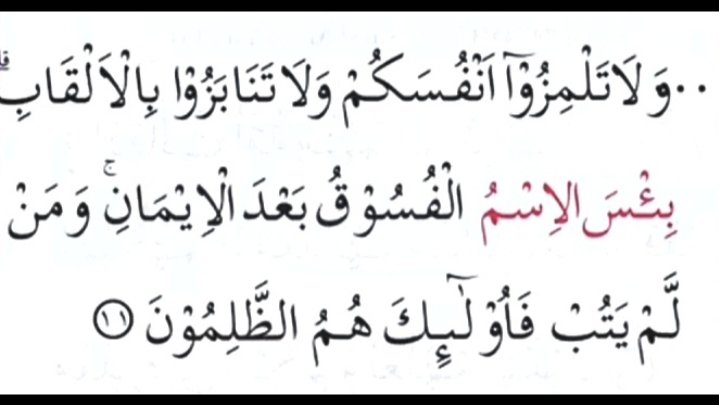 ..وَلَا تَلْمِزُوْٓا اَنْفُسَكُمْ وَلَا تَنَابَزُوْا بِالْاَلْقَابِۗ
بِئْسَ الِاسْمُ الْفُسُوْقُ بَعْدَ الْاِيْمَانِۚ وَمَنْ
لَّمْ يَتُبْ فَاُولٰۤىِٕكَ هُمُ الظّٰلِمُوْنَ ١١